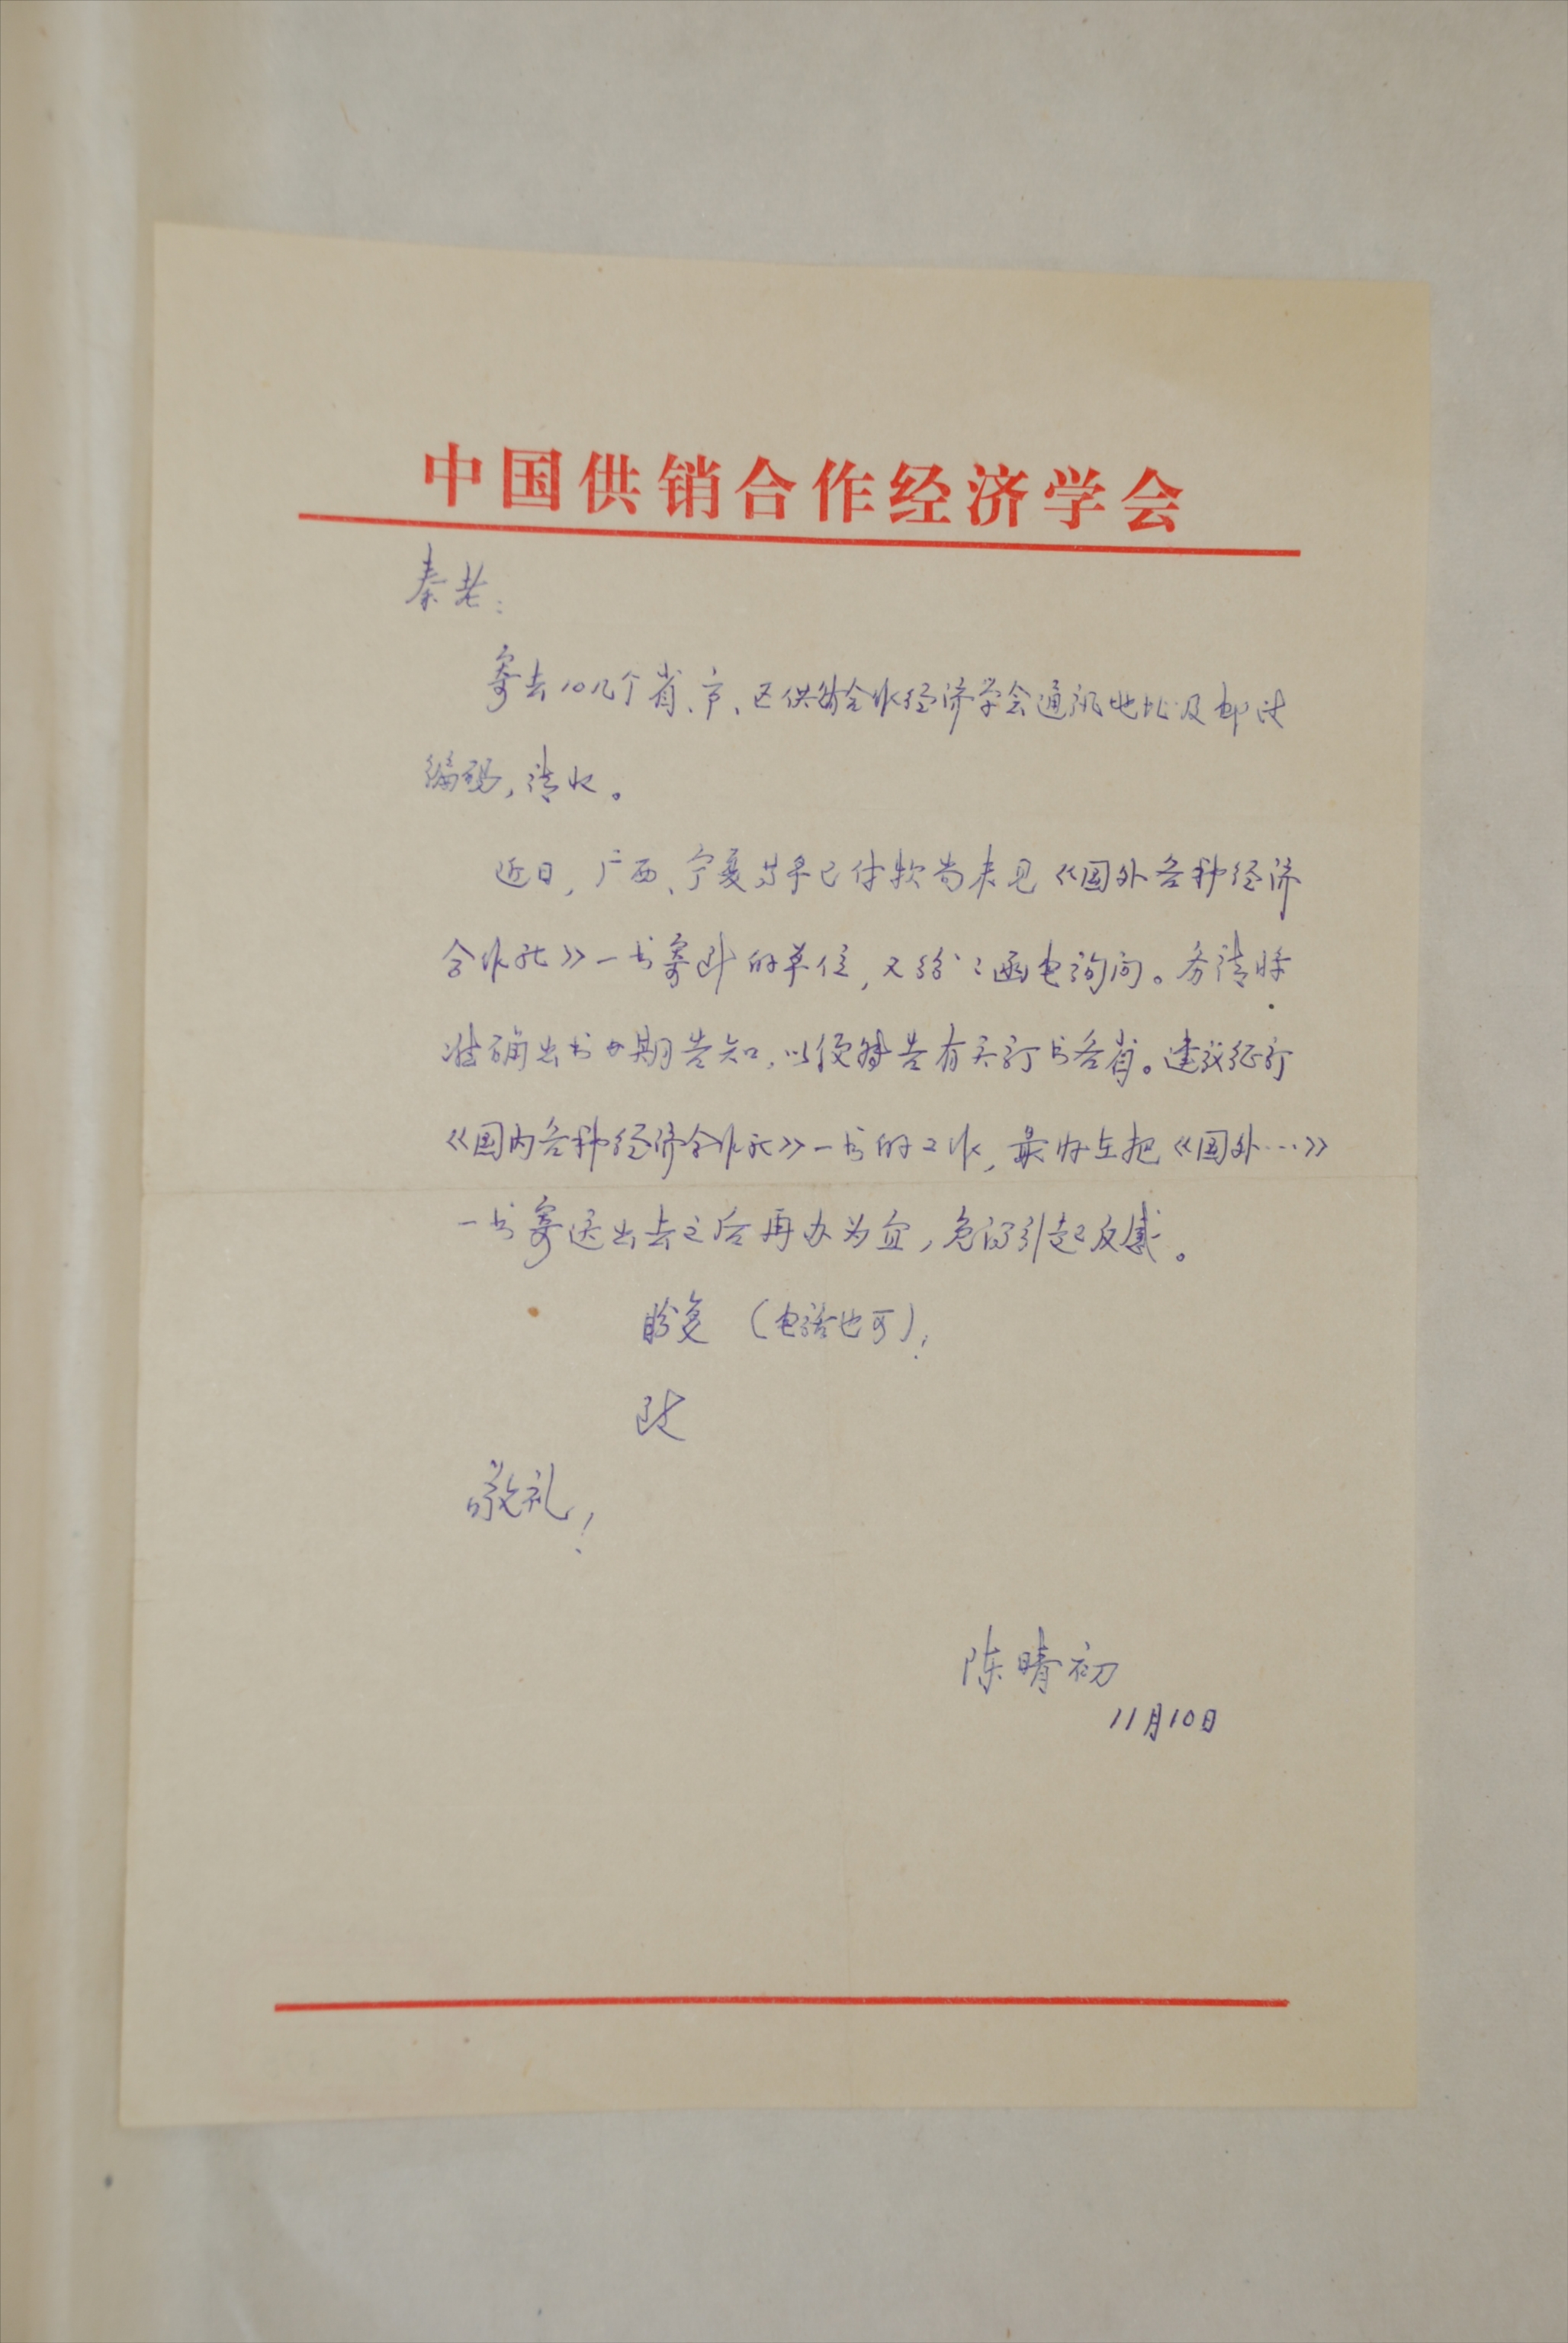 中国供销合作经济学会
秦老:
寄去10几个省、市、区供销合作经济学会通讯地址及邮政
编码,请收。
近日,广西、宁夏等早已付款尚未见《国外各种经济
合作社》一书寄到的单位,又纷纷函电询问。务请将
准确出书日期告知,以便转告有关订书各省。建议征订
《国内各种经济合作社》一书的工作,最好在把《国外…》
一书寄送出去之后再办为宜,免得引起反感。
盼复 (电话也可)!
致
敬礼!
陈晴初
11月10日